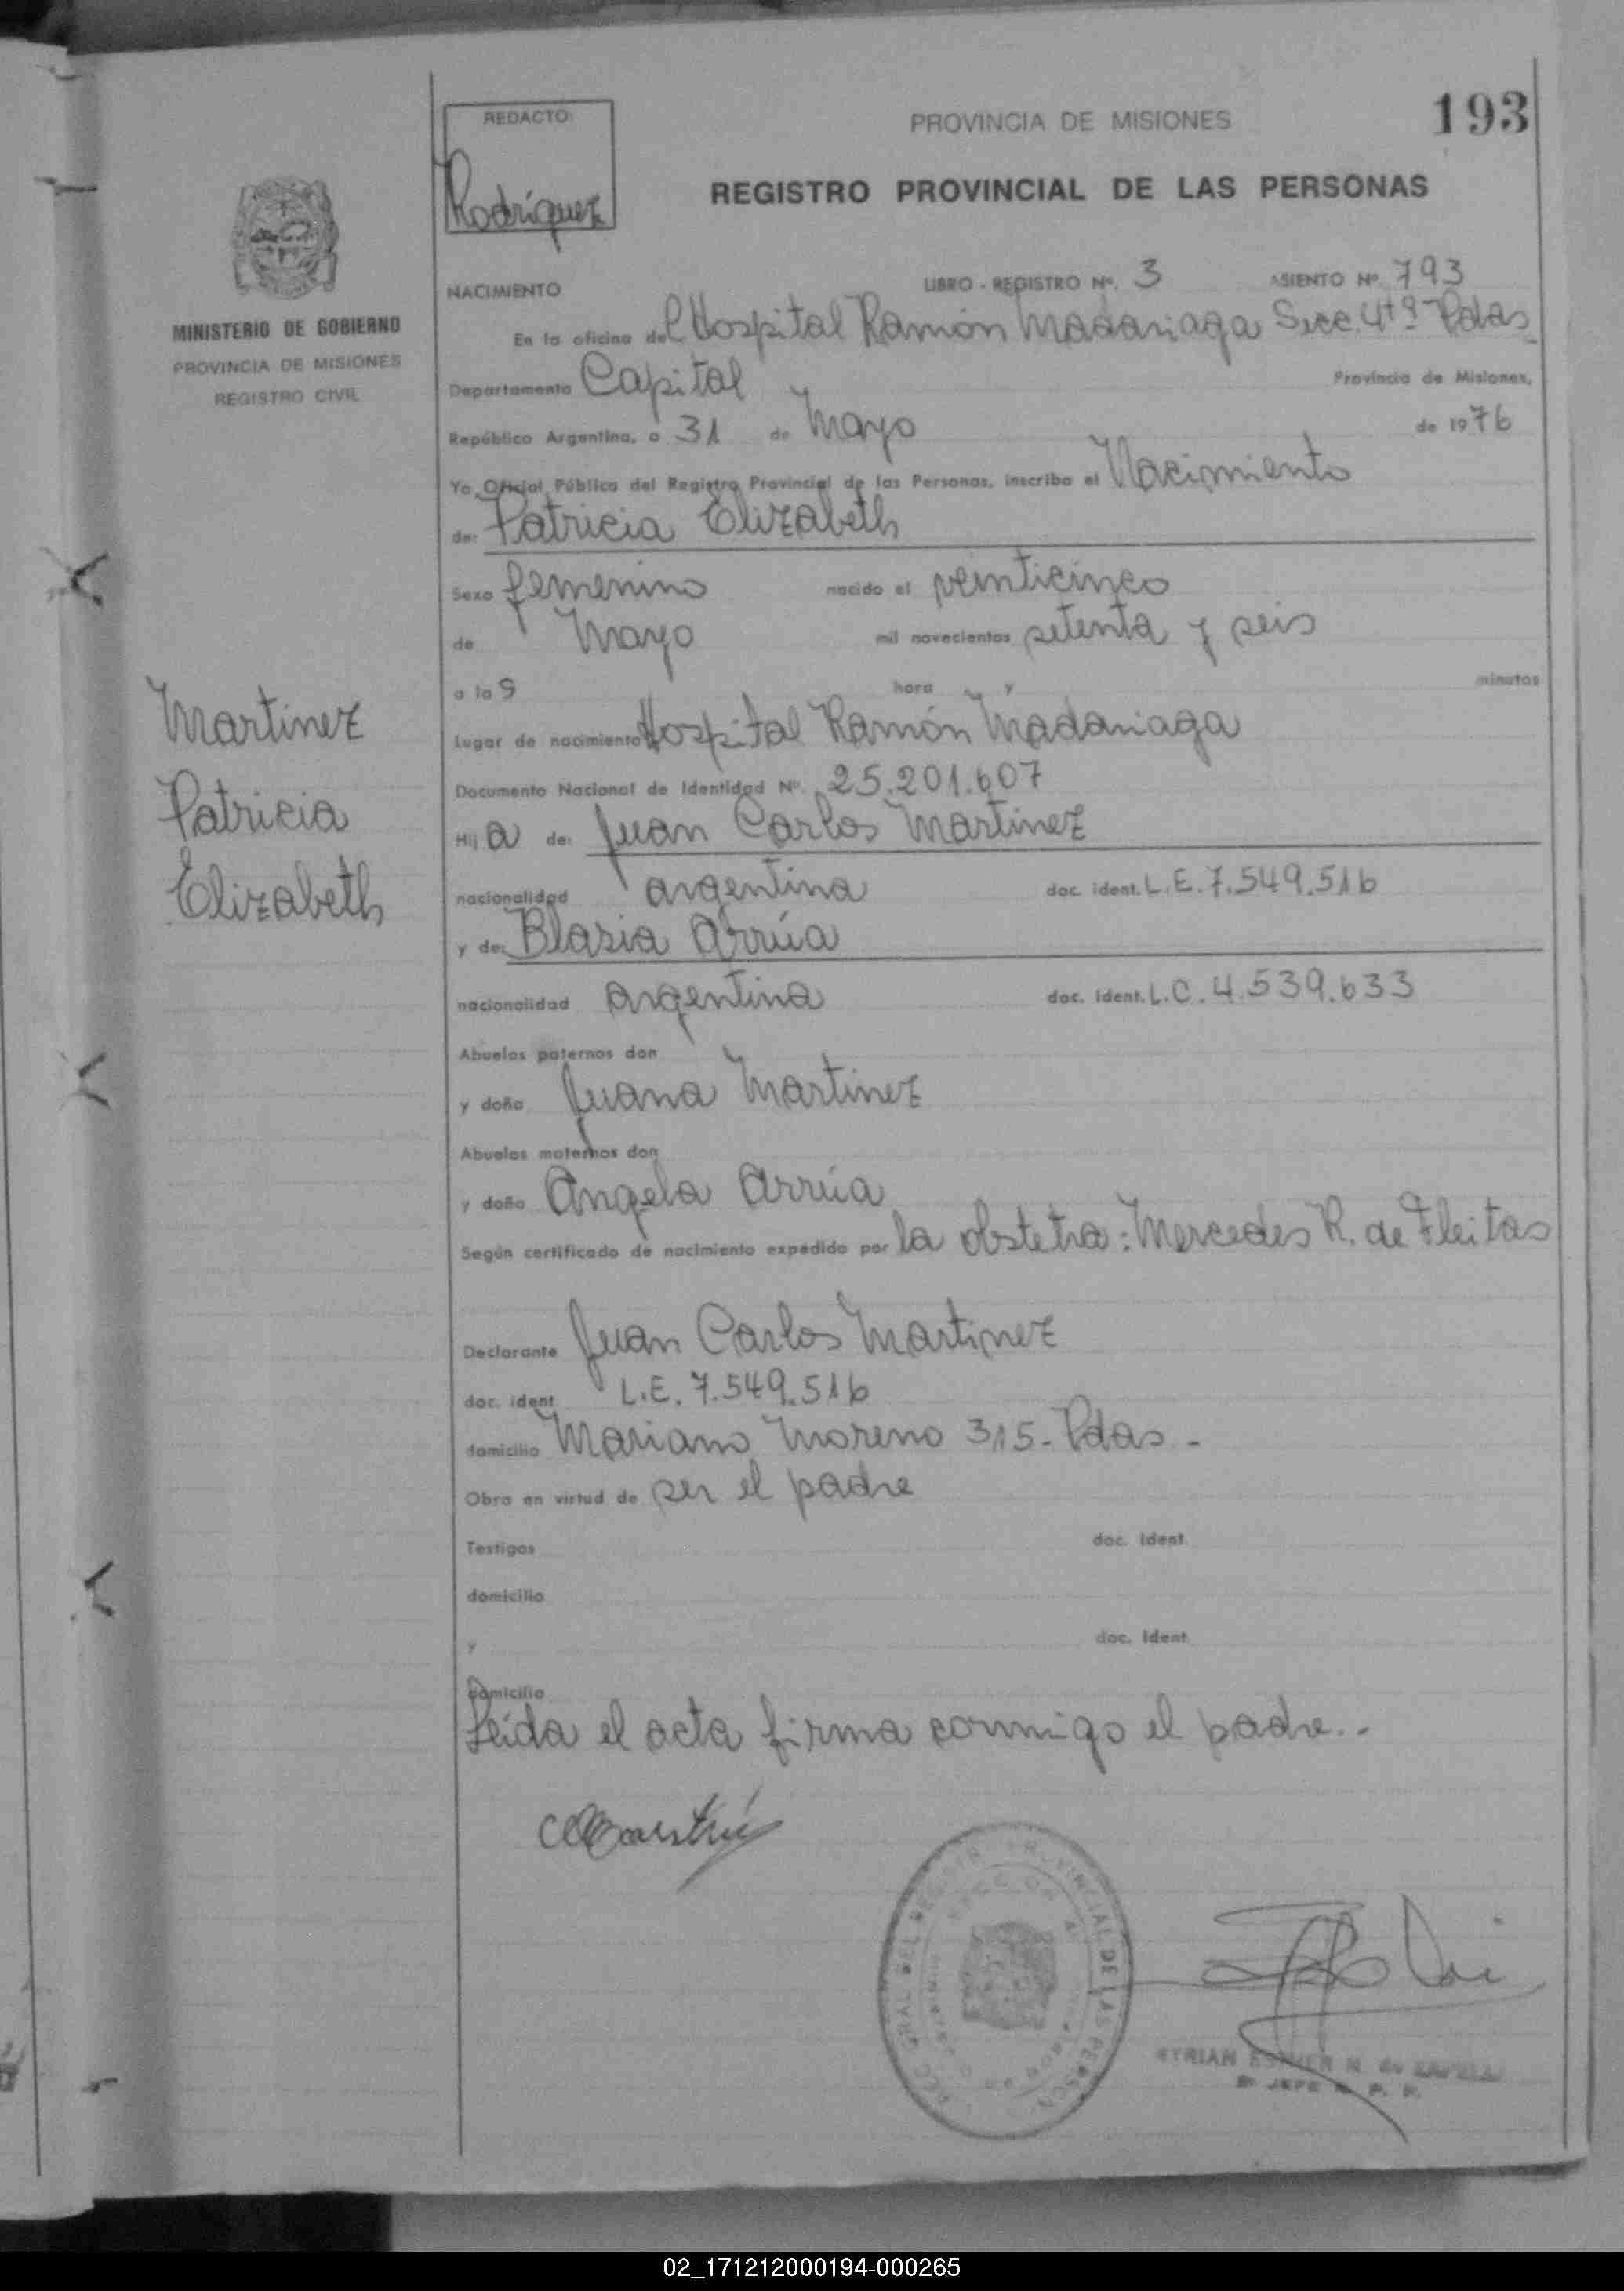 193
REDACTO:
Rodríguez
PROVINCIA DE MISIONES
REGISTRO PROVINCIAL DE LAS PERSONAS
MINISTERIO DE GOBIERNO
PROVINCIA DE MISIONES
REGISTRO CIVIL
NACIMIENTO LIBRO - REGISTRO Nº. 3 ASIENTO Nº. 793
En la oficina del Hospital Ramón Madariaga Secc. 4tª Pdas
Departamento Capital Provincia de Misiones,
República Argentina, a 31 de Mayo de 1976
Yo, Oficial Público del Registro Provincial de las Personas, inscribo el Nacimiento
de: Patricia Elizabeth
Sexo femenino nacido el veinticinco
de Mayo mil novecientos setenta y seis
a la 9 hora y minutos
Lugar de nacimiento Hospital Ramón Madariaga
Documento Nacional de Identidad Nº. 25.201.607
Hij a de: Juan Carlos Martinez
nacionalidad argentina doc. ident. L.E. 7.549.516
y de: Blasia Arrúa
nacionalidad argentina doc. ident. L.C. 4.539.633
Abuelos paternos don
y doña Juana Martinez
Abuelos maternos don
y doña Angela Arrúa
Según certificado de nacimiento expedido por la obstetra: Mercedes R. de Fleitas
Declarante Juan Carlos Martinez
doc. ident L.E. 7.549.516
domicilio Mariano Moreno 315 - Pdas -
Obra en virtud de ser el padre
Testigos doc. ident.
domicilio
y doc. ident
domicilio
Leída el acta firma conmigo el padre..-
Martinez
Patricia
Elizabeth
DE LAS PERSON
JEFE
02_171212000194-000265